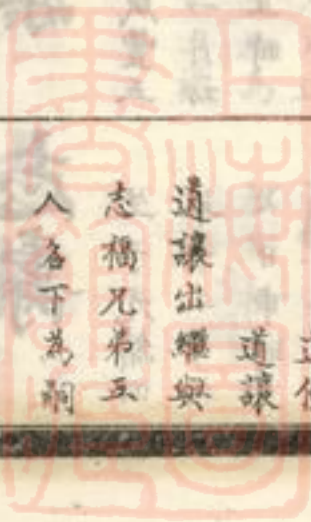 道讓
道讓出繼與
志兄弟五
人名下為嗣